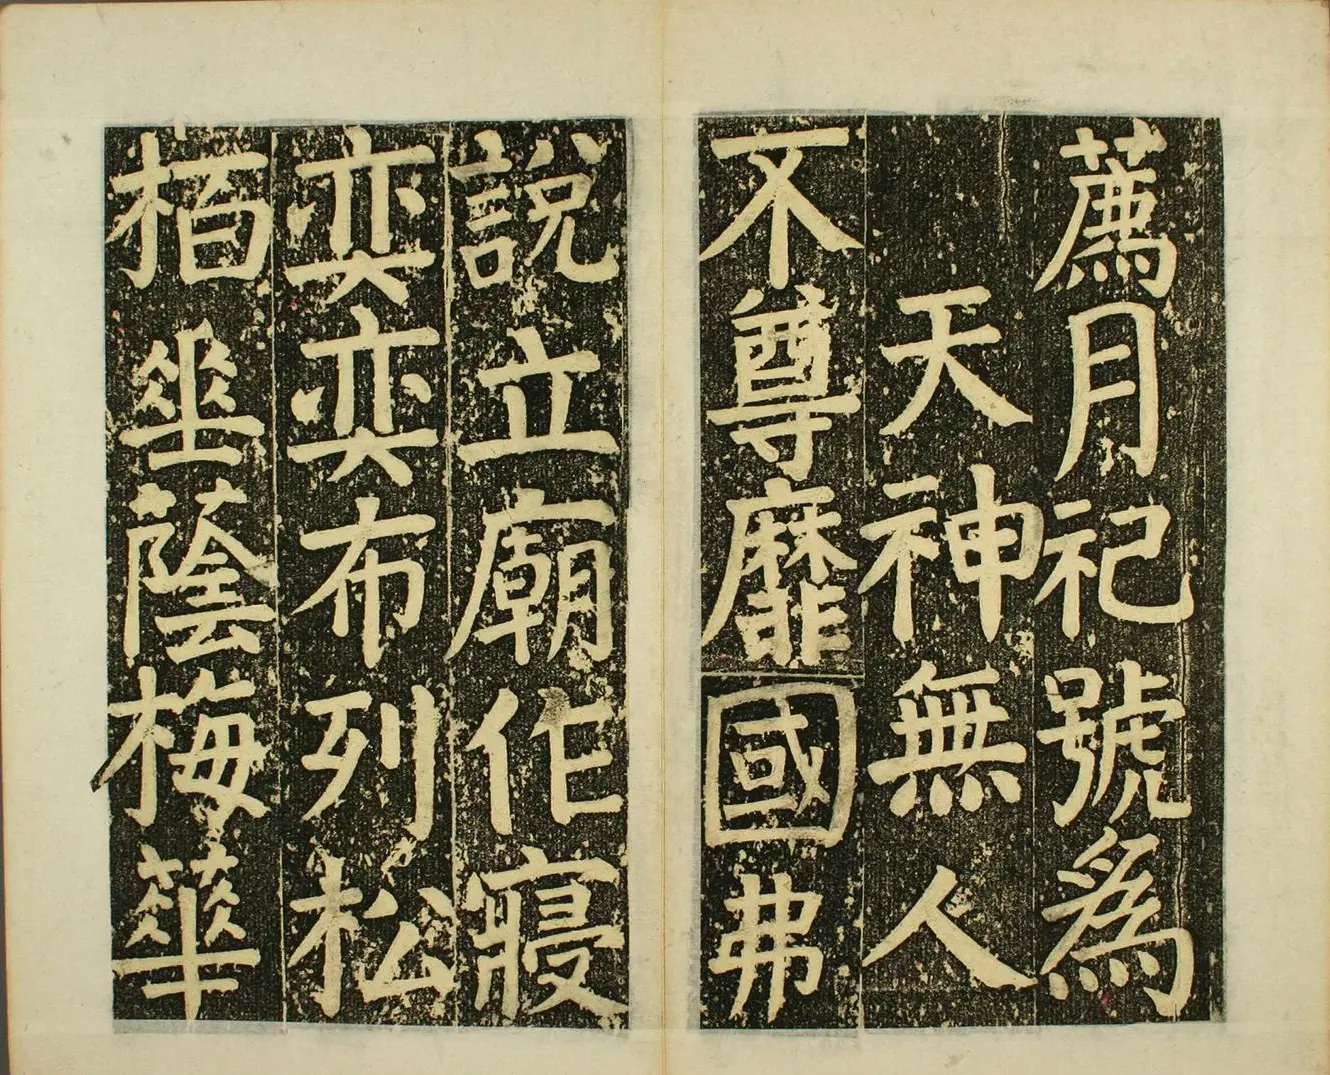 薦月祀號爲
天神無人
不尊靡國弗
說立廟作寢
奕奕布列松
栢坐蔭梅華